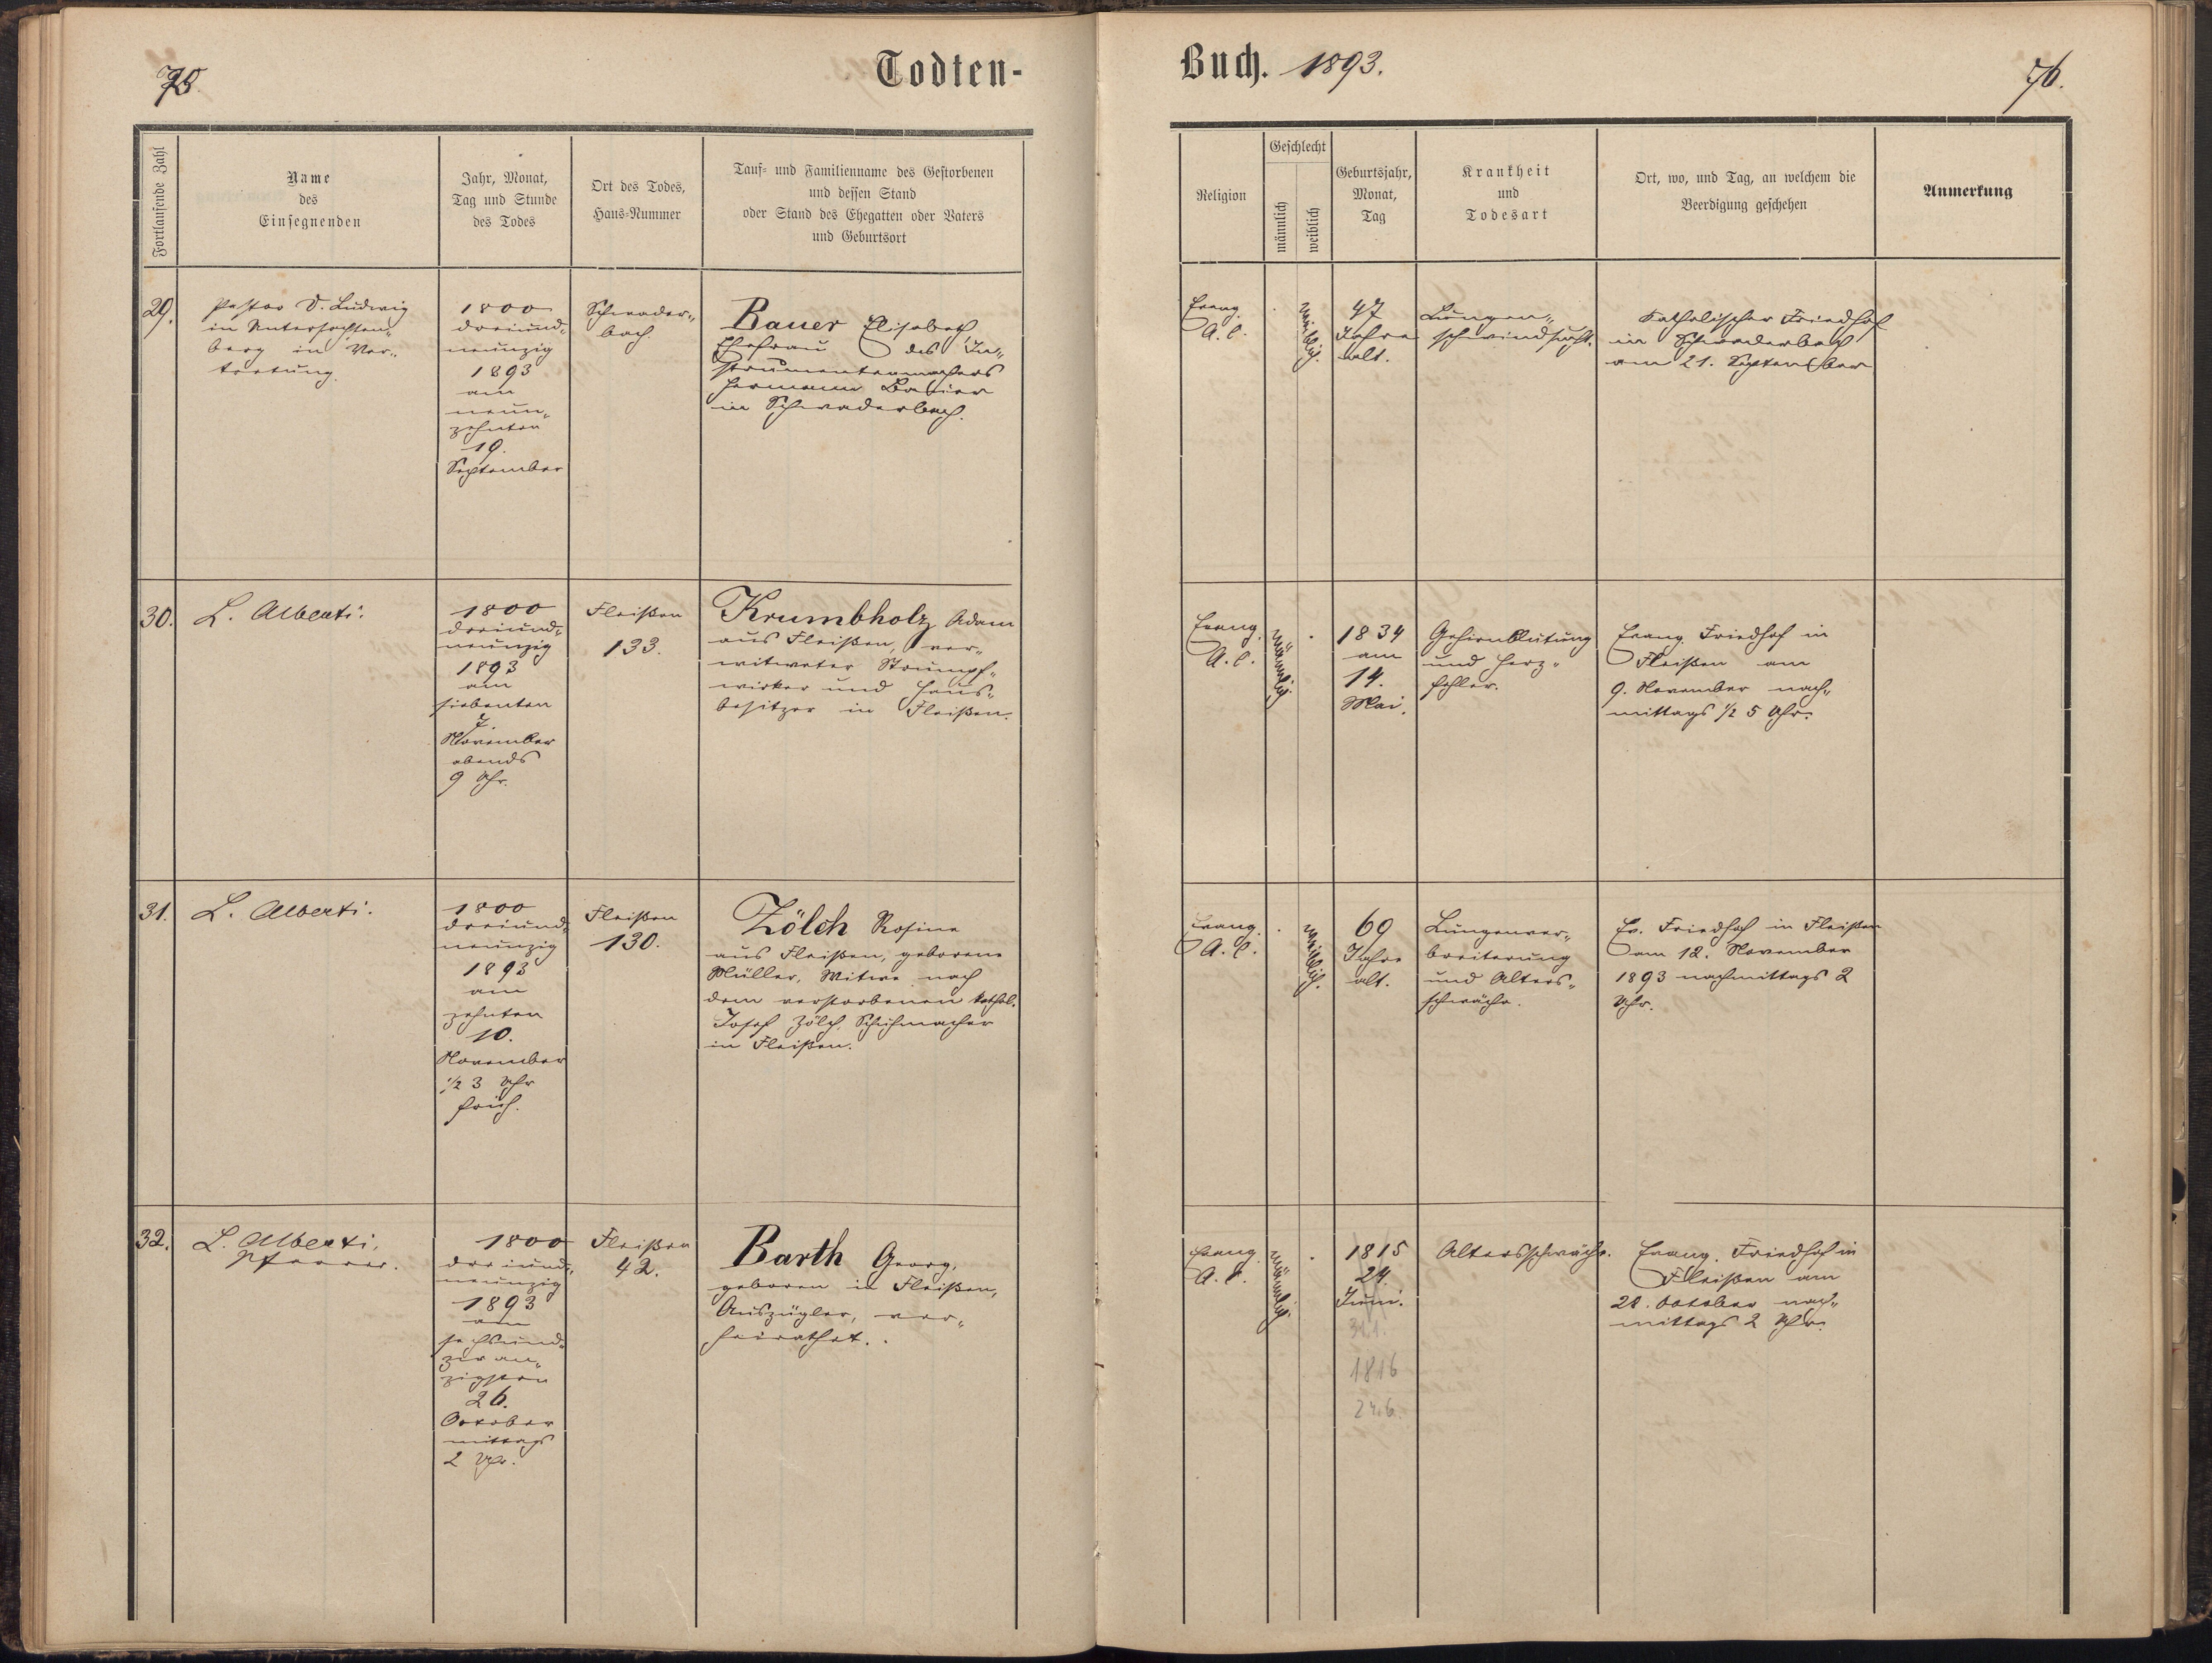 75.
Todten-
Fortlaufende Zahl
Name
des
Einsegnenden
Jahr, Monat,
Tag und Stunde
des Todes
Ort des Todes,
Haus-Nummer
Tauf- und Familienname des Gestorbenen
und dessen Stand
oder Stand des Ehegatten oder Vaters
und Geburtsort
29.
Pastor D. Ludwig
in Untersachsen„
berg in Ver„
tretung.
1800
dreiund„
neunzig
1893
am
neun„
zehnten
19.
September
Schwader„
bach.
Bauer Elisabeth,
Ehefrau des In„
strumentenmachers
Hermann Bauer
in Schwaderbach.
30.
L. Alberti.
1800
dreiund„
neunzig
1893
am
siebenten
7.
November
abends
9 Uhr.
Fleißen
133.
Krumbholz Adam
aus Fleißen, ver„
witweter Strumpf„
wirker und Haus„
besitzer in Fleißen.
31.
L. Alberti.
1800
dreiund„
neunzig
1893
am
zehnten
10.
November
½ 3 Uhr
früh.
Fleißen
130.
Zölch Rosine
aus Fleißen, geborene
Müller, Witwe nach
dem verstorbenen kathol.
Josef Zölch, Schuhmacher
in Fleißen.
32.
L. Alberti,
Pfarrer.
1800
dreiund„
neunzig
1893
am
sechsund„
zwan„
zigsten
26.
October
mittags
2 Uhr.
Fleißen
42.
Barth Georg,
geboren in Fleißen,
Auszügler, ver„
heirathet.
Buch. 1893.
76.
Religion
Geschlecht
männlich
weiblich
Geburtsjahr,
Monat,
Tag
Krankheit
und
Todesart
Ort, wo, und Tag, an welchem die
Beerdigung geschehen
Anmerkung
Evang.
A. C.
weiblich.
47
Jahre
alt.
Lungen„
schwindsucht.
Katholischer Friedhof
in Schwaderbach
am 21. September
Evang.
A. C.
männlich.
1834
am
14.
Mai.
Gehirnblutung
und Herz„
fehler.
Evang. Friedhof in
Fleißen am
9. November nach„
mittags ½ 5 Uhr.
Evang.
A. C.
weiblich.
69
Jahre
alt.
Lungenver„
breiterung
und Alters„
schwäche.
Ev. Friedhof in Fleißen
am 12. November
1893 nachmittags 2
Uhr.
Evang.
A. C.
männlich.
1815
24.
Juni.
1816
24.6.
Altersschwäche.
Evang. Friedhof in
Fleißen am
28. October nach„
mittags 2 Uhr.